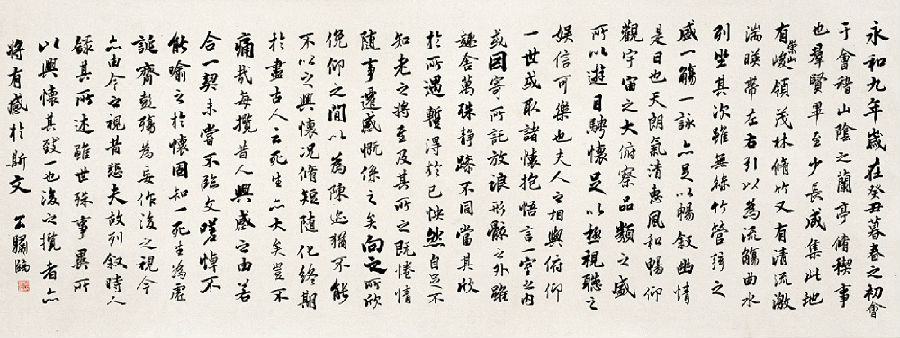 永和九年歲在癸丑暮春之初會
于會稽山陰之蘭亭脩禊事
也群賢畢至少長咸集此地
有崇山峻領茂林脩竹又有清流激
湍暎帶左右引以為流觴曲水
列坐其次雖無絲竹管弦之
盛一觴一詠亦足以暢叙幽情
是日也天朗氣清惠風和暢仰
觀宇宙之大俯察品類之盛
所以遊目騁懷足以極視聽之
娛信可樂也夫人之相與俯仰
一世或取諸懷抱悟言一室之內
或因寄所託放浪形骸之外雖
趣舍萬殊靜躁不同當其欣
於所遇暫得於己怏然自足不
知老之將至及其所之既惓情
隨事遷感慨係之矣向之所欣
俛仰之間以為陳迹猶不能
不以之興懷況脩短隨化終期
於盡古人云死生亦大矣豈不
痛哉每攬昔人興感之由若
合一契未嘗不臨文嗟悼不
能喻之於懷固知一死生為虛
誕齊彭殤為妄作後之視今
亦由今之視昔悲夫故列叙時人
錄其所述雖世殊事異所
以興懷其致一也後之攬者亦
將有感於斯文 公驌臨